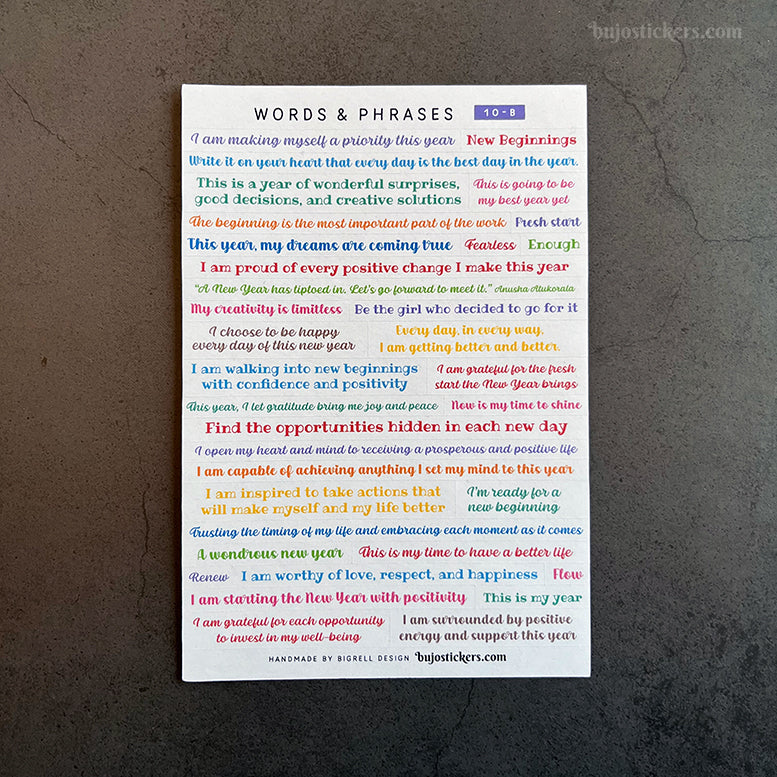 bujostickers.com
WORDS & PHRASES 10-B
I am making myself a priority this year New Beginnings
Write it on your heart that every day is the best day in the year.
This is a year of wonderful surprises,
good decisions, and creative solutions
This is going to be
my best year yet
The beginning is the most important part of the work Fresh start
This year, my dreams are coming true Fearless Enough
I am proud of every positive change I make this year
"A New Year has tiptoed in. Let's go forward to meet it." Anusha Atukorala
My creativity is limitless Be the girl who decided to go for it
I choose to be happy
every day of this new year
Every day, in every way,
I am getting better and better.
I am walking into new beginnings
with confidence and positivity
I am grateful for the fresh
start the New Year brings
This year, I let gratitude bring me joy and peace Now is my time to shine
Find the opportunities hidden in each new day
I open my heart and mind to receiving a prosperous and positive life
I am capable of achieving anything I set my mind to this year
I am inspired to take actions that
will make myself and my life better
I'm ready for a
new beginning
Trusting the timing of my life and embracing each moment as it comes
A wondrous new year This is my time to have a better life
Renew I am worthy of love, respect, and happiness Flow
I am starting the New Year with positivity This is my year
I am grateful for each opportunity
to invest in my well-being
I am surrounded by positive
energy and support this year
HANDMADE BY BIGRELL DESIGN bujostickers.com